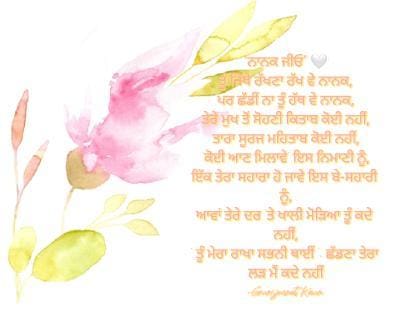 ਨਾਨਕ ਜੀਓ' 🤍
ਤੂੰ ਜਿੱਥੇ ਰੱਖਣਾ ਰੱਖ ਵੇ ਨਾਨਕ,
ਪਰ ਛੱਡੀਂ ਨਾ ਤੂੰ ਹੱਥ ਵੇ ਨਾਨਕ,
ਤੇਰੇ ਮੁਖ ਤੋਂ ਸੋਹਣੀ ਕਿਤਾਬ ਕੋਈ ਨਹੀਂ,
ਤਾਰਾ ਸੂਰਜ ਮਹਿਤਾਬ ਕੋਈ ਨਹੀਂ,
ਕੋਈ ਆਣ ਮਿਲਾਵੇ ਇਸ ਨਿਮਾਣੀ ਨੂੰ,
ਇੱਕ ਤੇਰਾ ਸਹਾਰਾ ਹੋ ਜਾਵੇ ਇਸ ਬੇ-ਸਹਾਰੀ
ਨੂੰ,
ਆਵਾਂ ਤੇਰੇ ਦਰ ਤੇ ਖਾਲੀ ਮੋੜਿਆ ਤੂੰ ਕਦੇ
ਨਹੀਂ,
ਤੂੰ ਮੇਰਾ ਰਾਖਾ ਸਭਨੀ ਥਾਈਂ . ਛੱਡਣਾ ਤੇਰਾ
ਲੜ ਮੈਂ ਕਦੇ ਨਹੀਂ